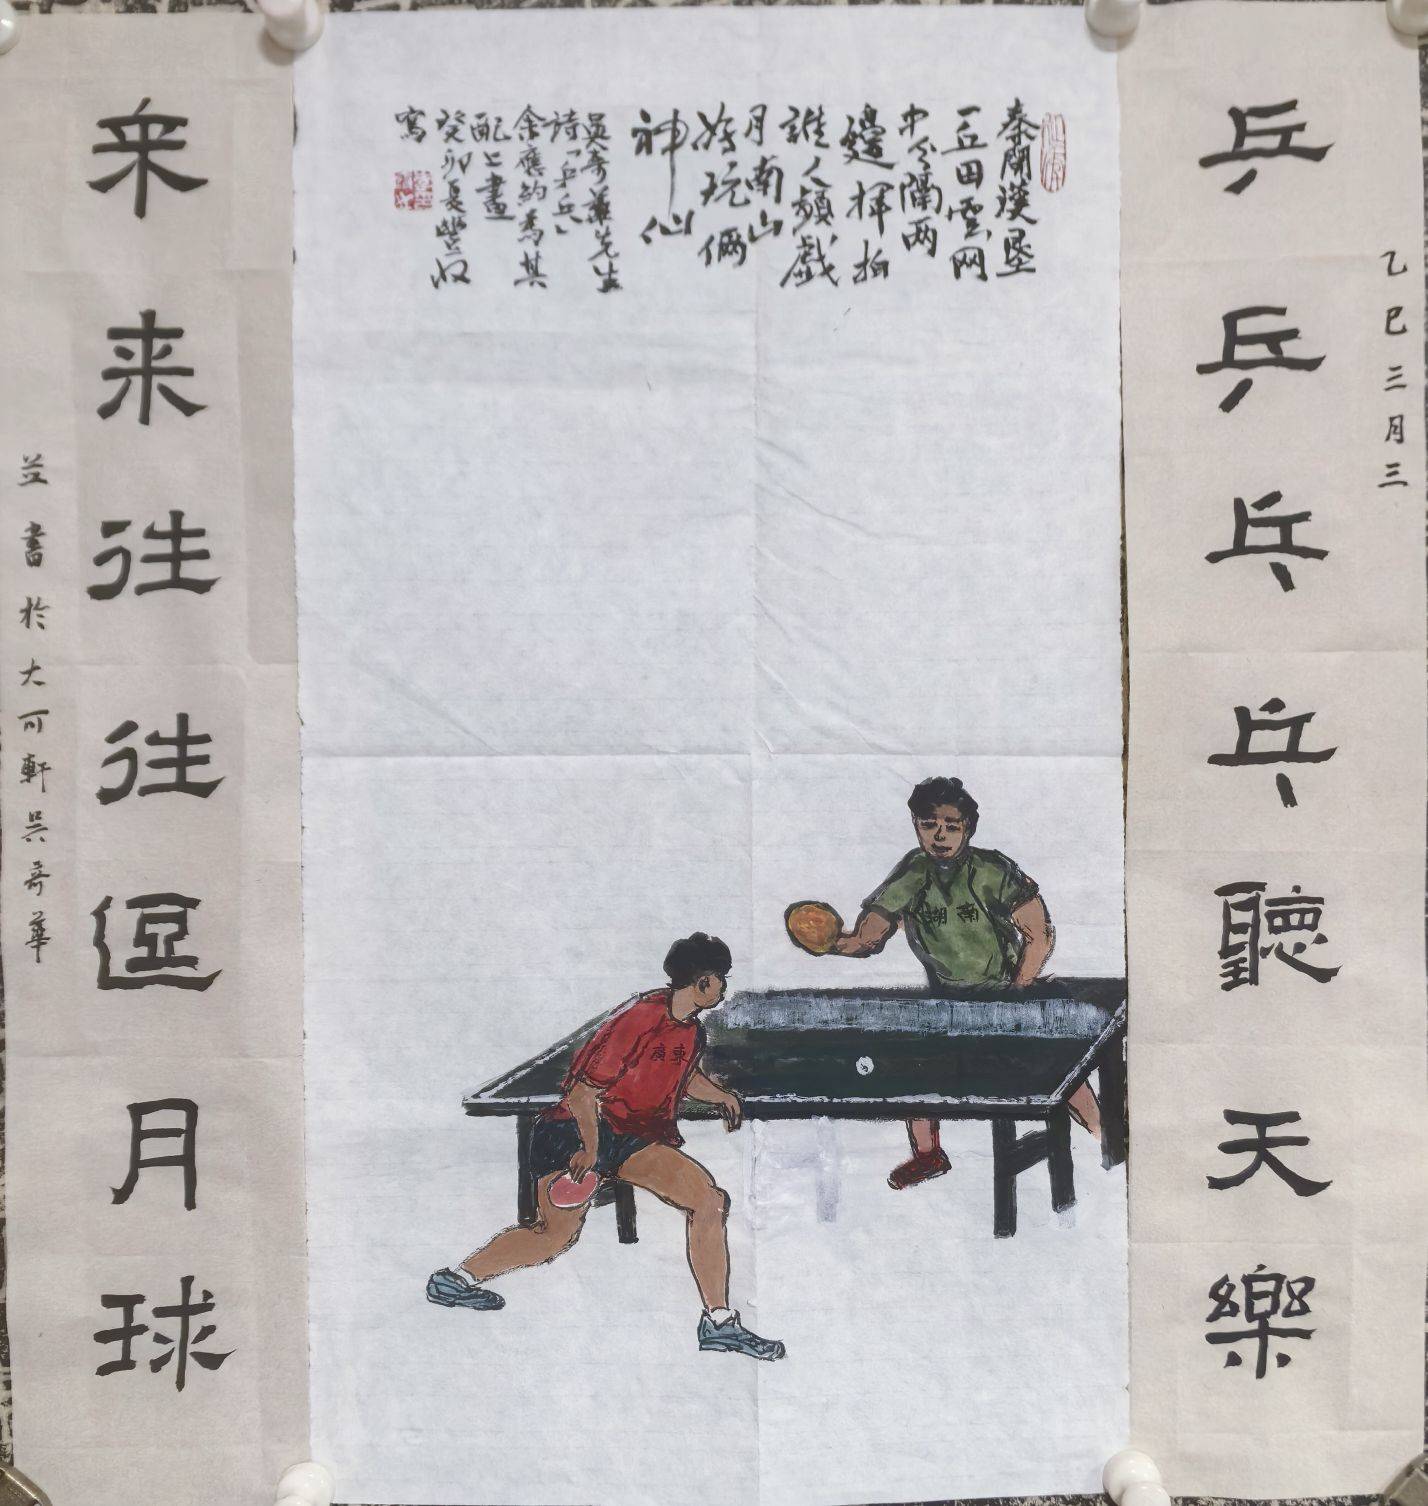 乙巳三月三
乒乒乓乓聽天樂
秦開漢垦
一丘田雲网
中分隔两
邊揮拍
誰人頻戲
月南山
好玩倆
神仙
吳奇華先生
詩「乒乓」
余應約為其
配上畫
癸卯夏豐收
寫
湖南
廣東
来来往往逗月球
並書於大可軒吳奇華